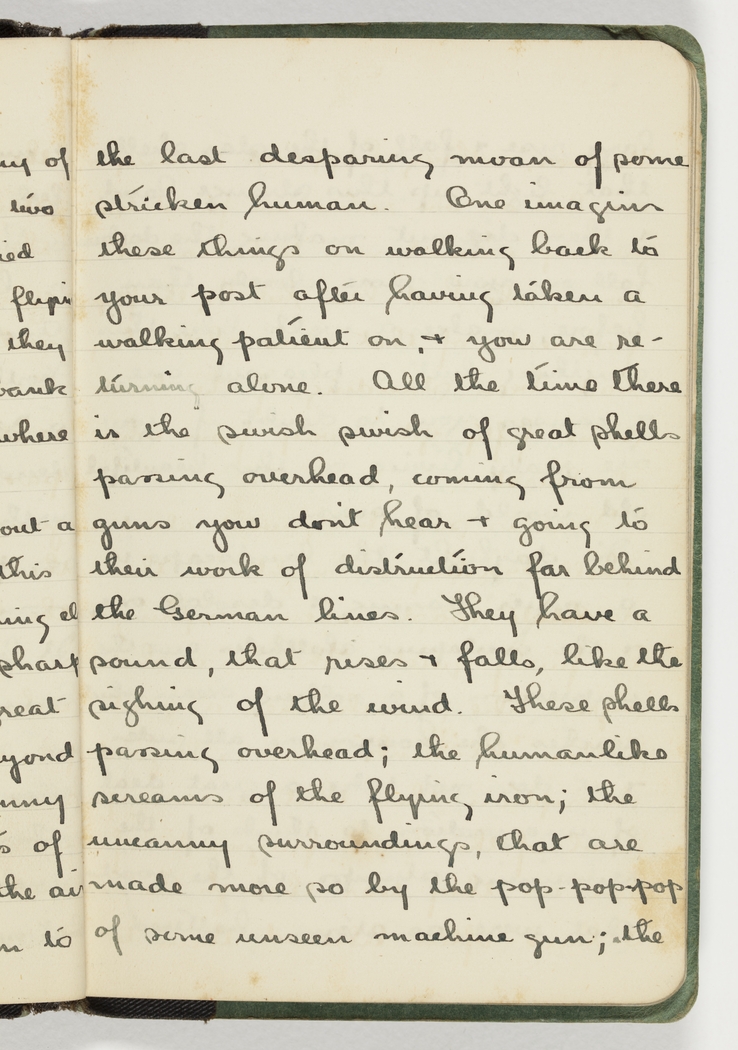 the last desparing moan of some
stricken human. One imagins
these things on walking back to
your post after having taken a
walking patient on, + you are re-
turning alone. All the time there
is the swish swish of great shells
passing overhead, coming from
guns you don't hear + going to
their work of distruction far behind
the German lines. They have a
sound, that rises + falls, like the
sighing of the wind. These shells
passing overhead; the humanlike
screams of the flying iron; the
uncanny surroundings, that are
made more so by the pop-pop-pop
of some unseen machine gun; the